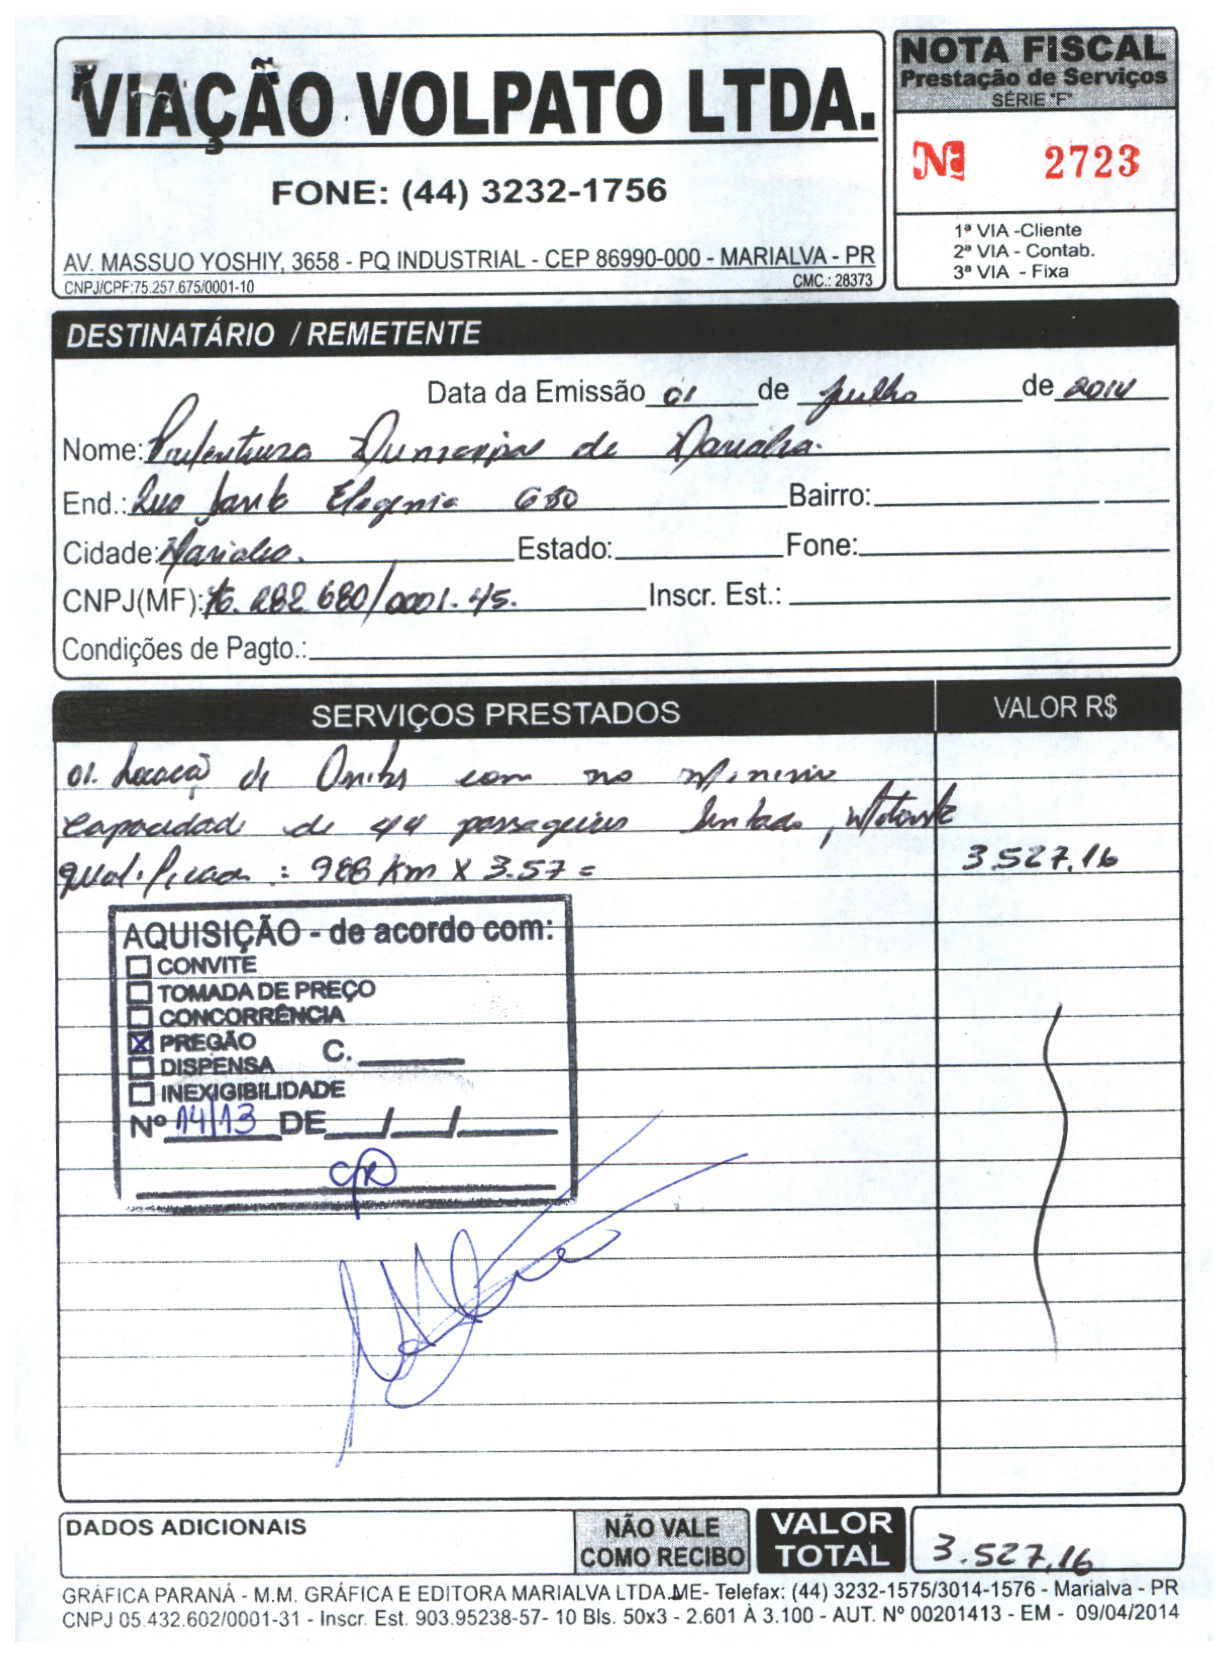 VIAÇÃO VOLPATO LTDA.
FONE: (44) 3232-1756
AV. MASSUO YOSHIY, 3658 - PQ INDUSTRIAL - CEP 86990-000 - MARIALVA - PR
CNPJ/CPF:75.257.675/0001-10 CMC.: 28373
NOTA FISCAL
Prestação de Serviços
SÉRIE "F"
Nº 2723
1ª VIA -Cliente
2ª VIA - Contab.
3ª VIA - Fixa
DESTINATÁRIO / REMETENTE
Data da Emissão 01 de Julho de 2014
Nome: Prefeitura Municipal de Marialva.
End.: Rua Santa Efigenia 680 Bairro:
Cidade: Marialva. Estado: Fone:
CNPJ(MF): 76.282.680/0001.45. Inscr. Est.:
Condições de Pagto.:
SERVIÇOS PRESTADOS VALOR R$
01. Locação de Onibus com no Minimo
Capacidade de 44 passageiros Sentado, Motorista
qualificado : 988 Km X 3.57 = 3.527,16
AQUISIÇÃO - de acordo com:
CONVITE
TOMADA DE PREÇO
CONCORRÊNCIA
X PREGÃO C.
DISPENSA
INEXIGIBILIDADE
Nº 14/13 DE / /
DADOS ADICIONAIS
NÃO VALE
COMO RECIBO
VALOR
TOTAL
3.527,16
GRÁFICA PARANÁ - M.M. GRÁFICA E EDITORA MARIALVA LTDA.ME- Telefax: (44) 3232-1575/3014-1576 - Marialva - PR
CNPJ 05.432.602/0001-31 - Inscr. Est. 903.95238-57- 10 Bls. 50x3 - 2.601 À 3.100 - AUT. Nº 00201413 - EM - 09/04/2014